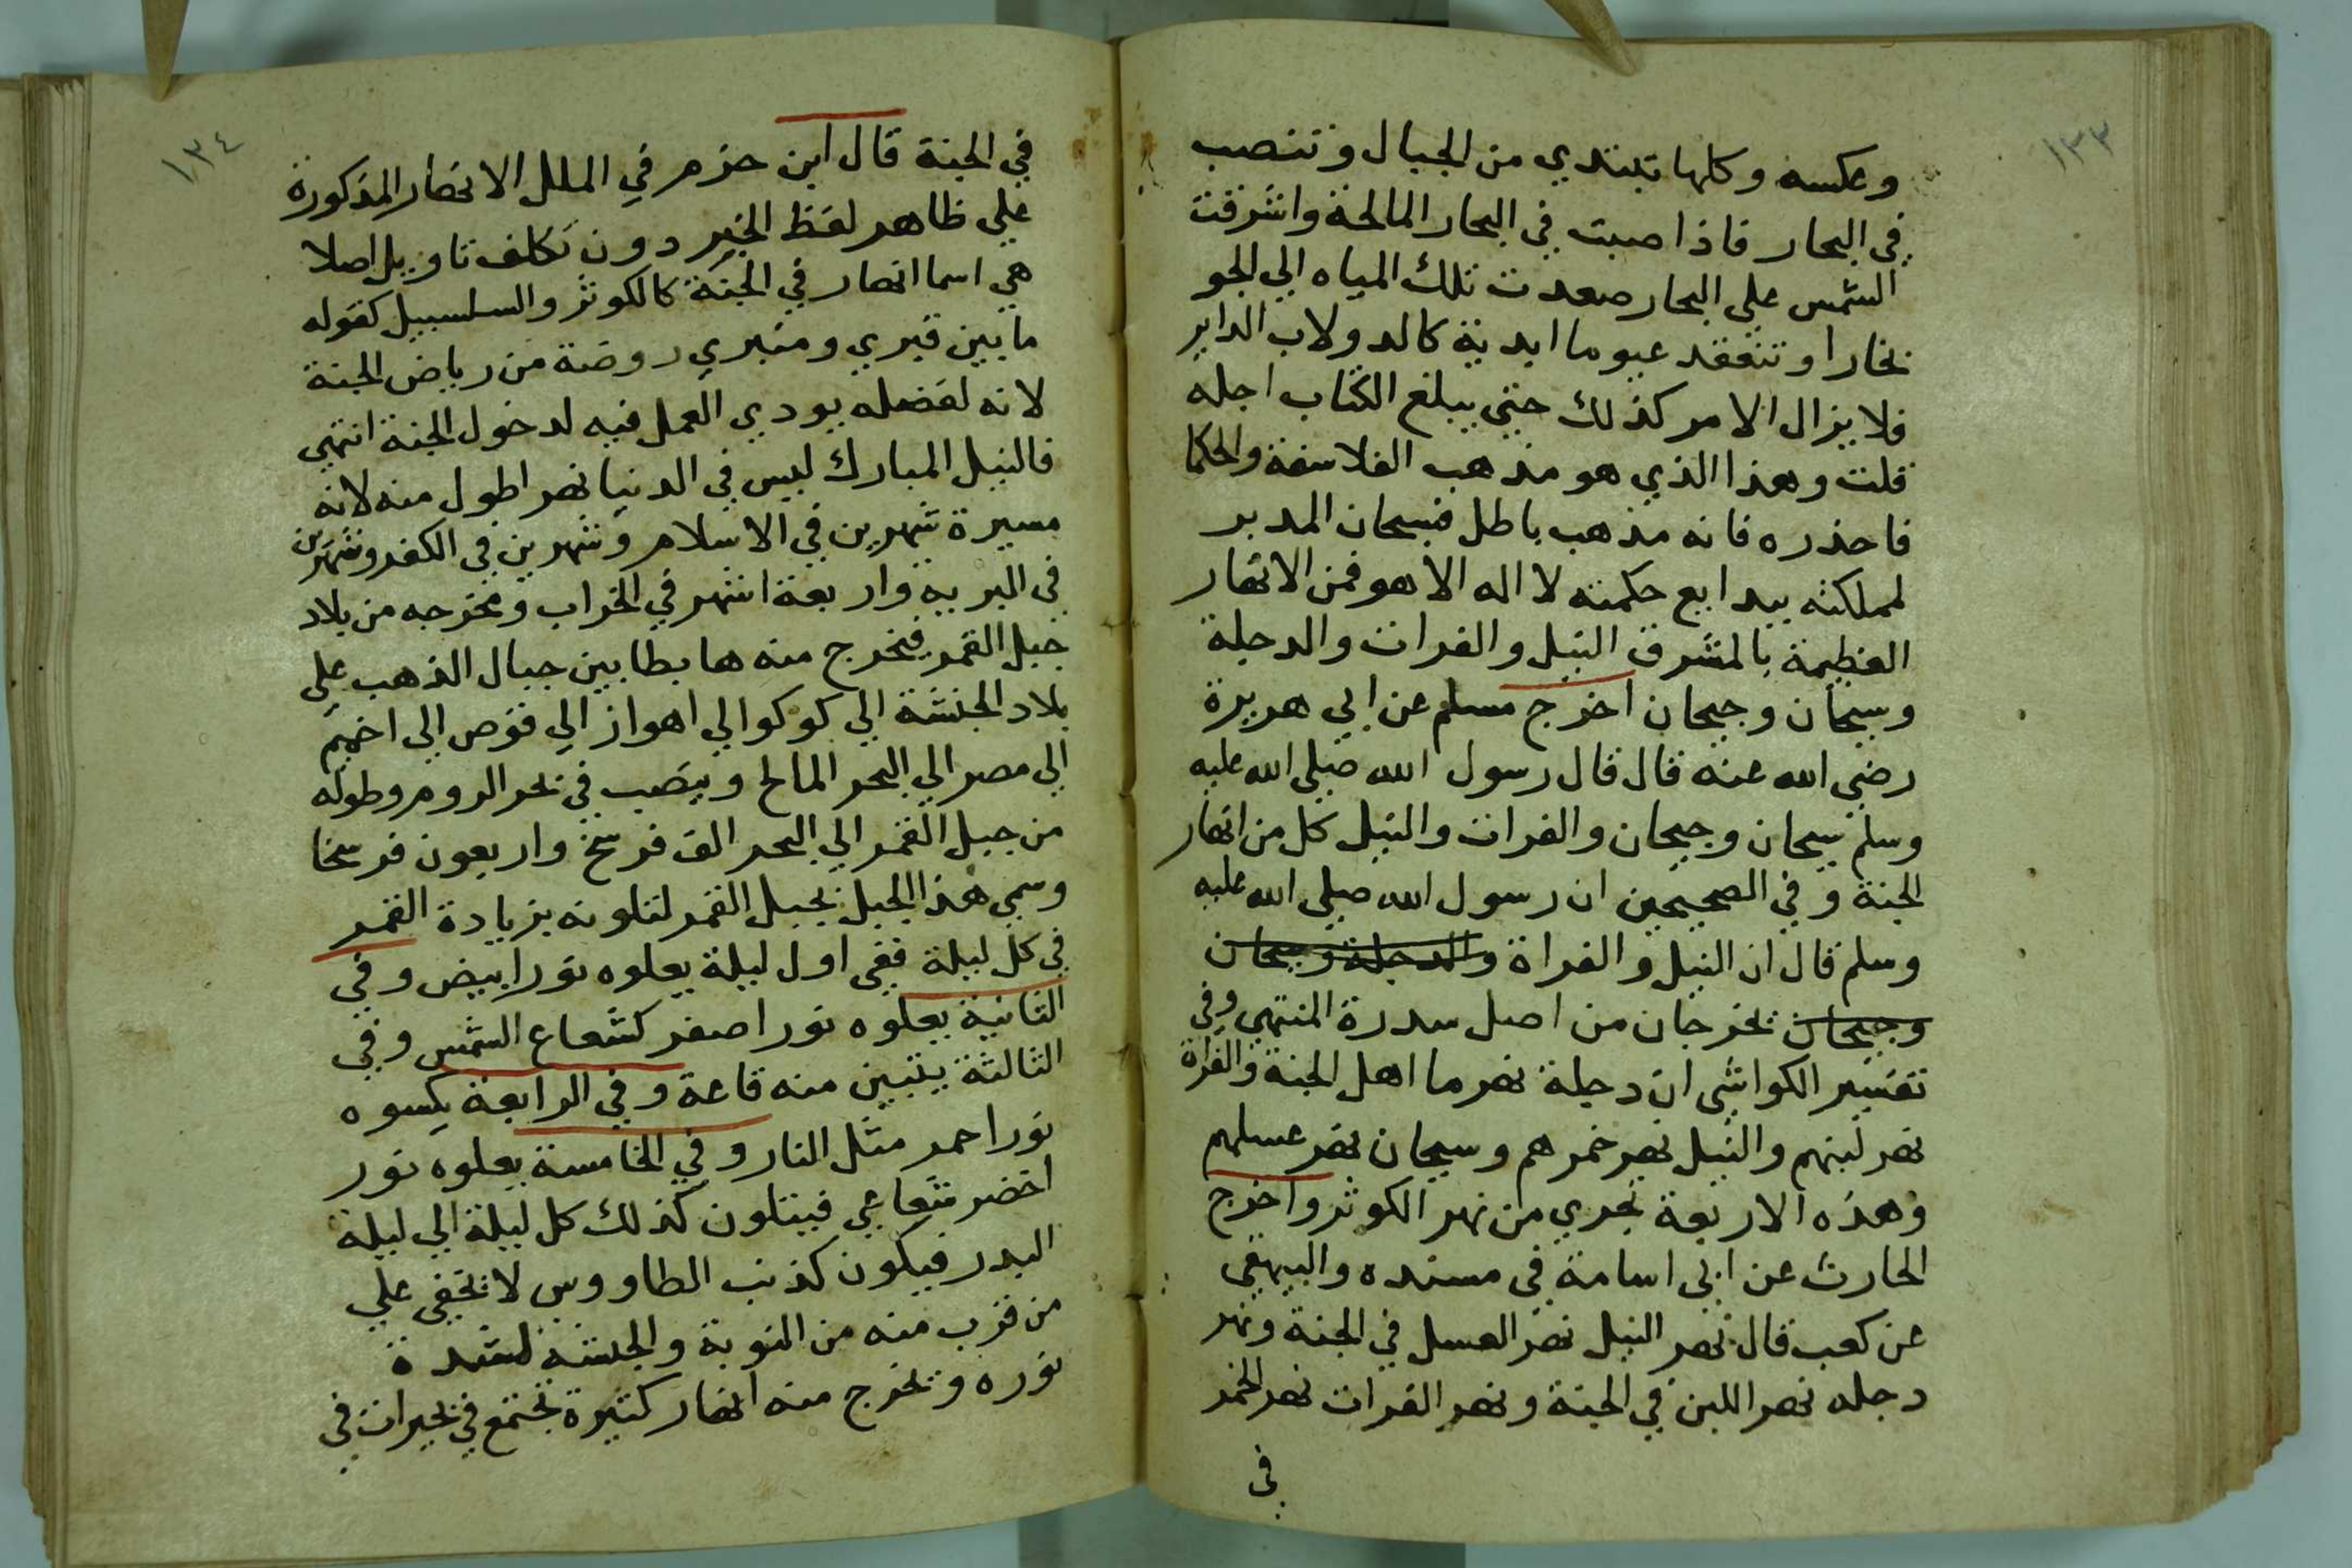 ١٣٣
وعكسه وكلها تبتدي من الجبال وتنصب
في البحار فاذا صبت في البحار المالحة واشرقت
الشمس على البحار صعدت تلك المياه الي الجو
بخارا وتنعقد غيوما ابدية كالدولاب الداير
فلا يزال الامر كذلك حتى يبلغ الكتاب اجله
قلت وهذا الذي هو مذهب الفلاسفة والحكما
فاحذره فانه مذهب باطل فسبحان المدبر
لمملكته ببدايع حكمته لا اله الا هو فمن الانهار
العظيمة بالمشرق النيل والفرات والدجلة
وسيحان وجيحان اخرج مسلم عن ابي هريرة
رضي الله عنه قال قال رسول الله صلى الله عليه
وسلم سيحان وجيحان والفرات والنيل كل من انهار
الجنة وفي الصحيحين ان رسول الله صلى الله عليه
وسلم قال ان النيل والفراة والدجلة وسيحان
وجيحان يخرجان من اصل سدرة المنتهي وفي
تفسير الكواشي ان دجلة نهر ما اهل الجنة والفراة
نهر لبنهم والنيل نهر خمرهم وسيحان نهر عسلهم
وهذه الاربعة تجري من نهر الكوثر واخرج
الحارث عن ابي اسامة في مسنده والبيهقي
عن كعب قال نهر النيل نهر العسل في الجنة ونهر
دجله نهر اللبن في الجنة ونهر الفرات نهر الخمر
في
١٣٤
في الجنة قال ابن حزم في الملل الانهار المذكورة
علي ظاهر لفظ الخبر دون تكلف تاويل اصلا
هي اسما انهار في الجنة كالكوثر والسلسبيل كقوله
ما بين قبري ومنبري روضة من رياض الجنة
لانه لفضله يودي العمل فيه لدخول الجنة انتهى
فالنيل المبارك ليس في الدنيا نهر اطول منه لانه
مسيرة شهرين في الاسلام وشهرين في الكفر وشهرين
في البرية واربعة اشهر في الخراب ومخرجه من بلاد
جبل القمر فيخرج منه هابطا بين جبال الذهب علي
بلاد الحبشة الي كوكو الي اهواز الي قوص الي اخميم
الي مصر الي البحر المالح ويصب في بحر الروم وطوله
من جبل القمر الي البحر الف فرسخ واربعون فرسخا
وسمي هذا الجبل بجبل القمر لتلونه بزيادة القمر
في كل ليلة ففي اول ليلة يعلوه نور ابيض وفي
الثانية يعلوه نور اصفر كشعاع الشمس وفي
الثالثة يتبين منه قاعة وفي الرابعة يكسوه
نور احمر مثل النار وفي الخامسة يعلوه نور
اخضر شعاعي فيتلون كذلك كل ليلة الي ليلة
البدر فيكون كذنب الطاووس لا يخفى علي
من قرب منه من النوبة والحبشة لشدة
نوره ويخرج منه انهار كثيرة تجتمع في بحيرات في